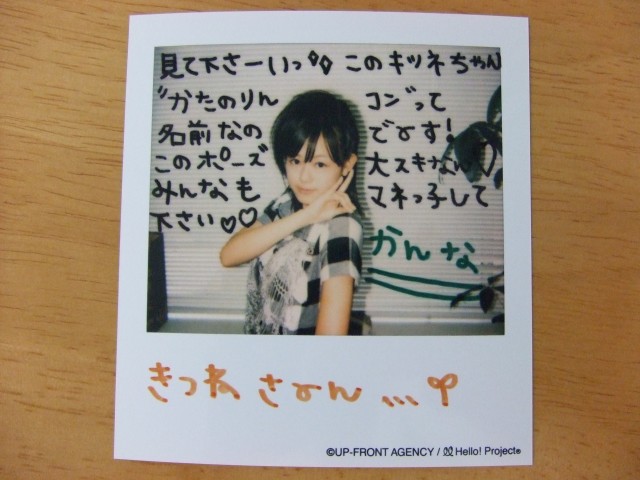 見て下さーいっ◇◇ このキツネちゃん
"かたのりん コン"って
名前なの でーす!
このポーズ 大スキなん♡
みんなも マネっ子して
下さい♡♡
かんな
きつねさょん...
©UP-FRONT AGENCY / Hello! Project®